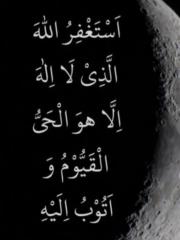 اَسْتَغْفِرُ اللهَ
الَّذِىْ لَا اِلٰهَ
اِلَّا هوَ الْحَىُّ
الْقَيُّوْمُ وَ
اَتُوْبُ اِلَيْهِ